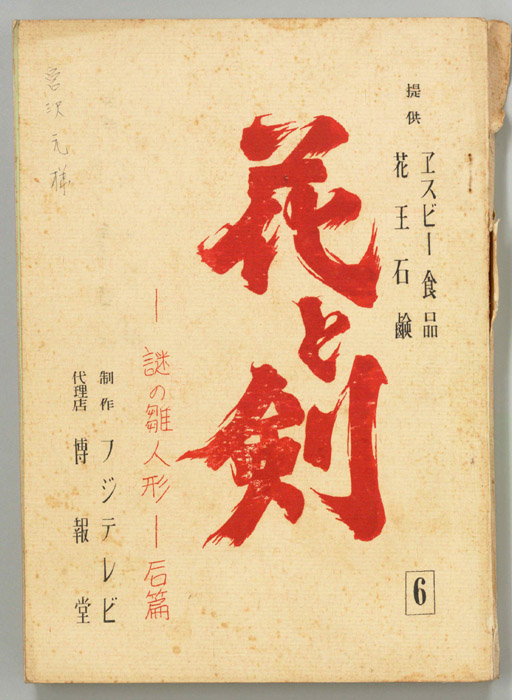 提供
ヱスビー食品
花王石鹸
花と剣
6
―謎の雛人形―后篇
制作 フジテレビ
代理店 博報堂
宮沢元様